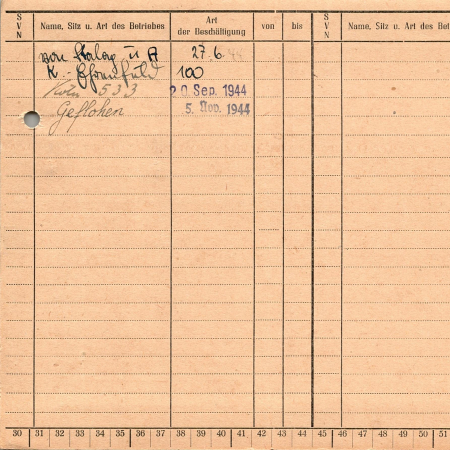 S V N Name, Sitz u. Art des Betriebes Art der Beschäftigung von bis S V N Name, Sitz u. Art des Bet
von Stalag u A 27.6.44
K. Ehrenfeld 100
Köln 533 20 Sep. 1944
Geflohen 5. Nov. 1944
30 31 32 33 34 35 36 37 38 39 40 41 42 43 44 45 46 47 48 49 50 51